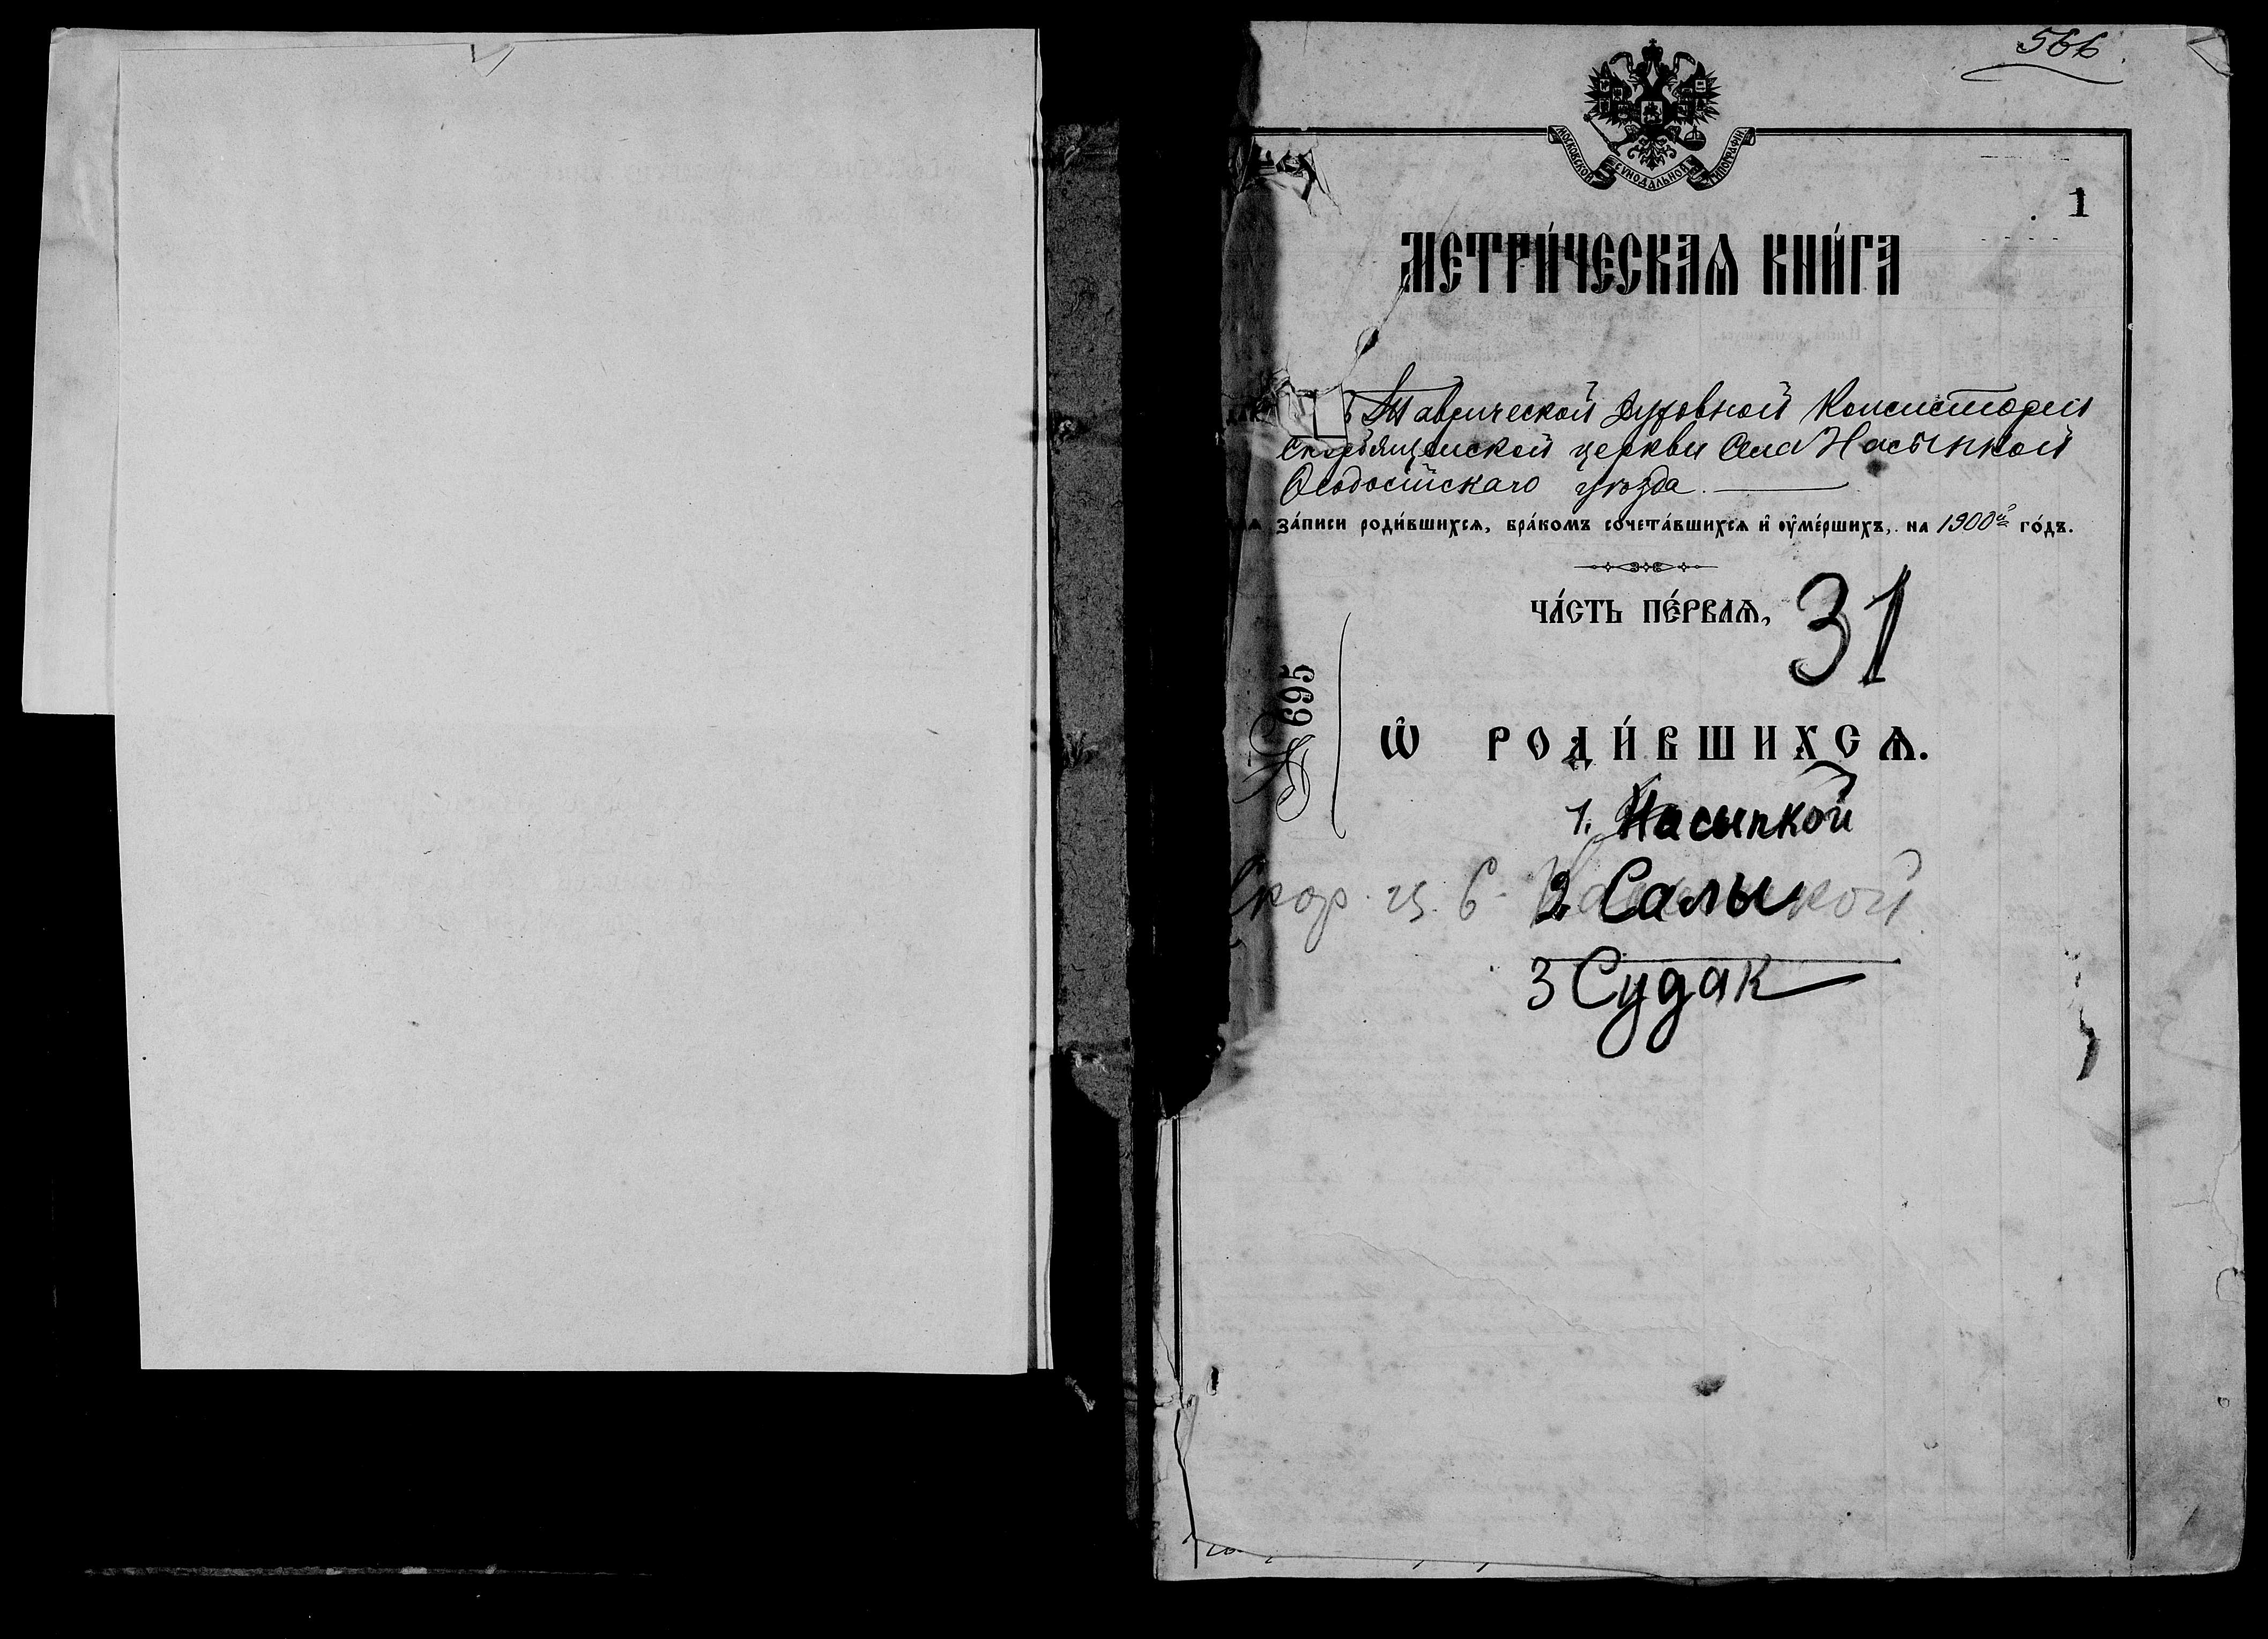 566.
МОСКОВСКОЙ СѴНОДАЛЬНОЙ ТИПОГРАФІИ
1
МЕТРИ́ЧЕСКАѦ КНИ́ГА
Таврической Духовной Консисторіи
Скорбященской церкви Села Насыпкой
Ѳеодосійскаго уѣзда.
за́писи роди́вшихсѧ, бра́комъ сочета́вшихсѧ и҆ ᲂу҆ме́ршихъ, на 1900й го́дъ.
ЧА́СТЬ ПЕ́РВАѦ,
31
№ 695
Ѡ҆ РОДИ́ВШИХСѦ.
1. Насыпкой
Скор. ц. с. Насыпкой
2. Салы
3 Судак